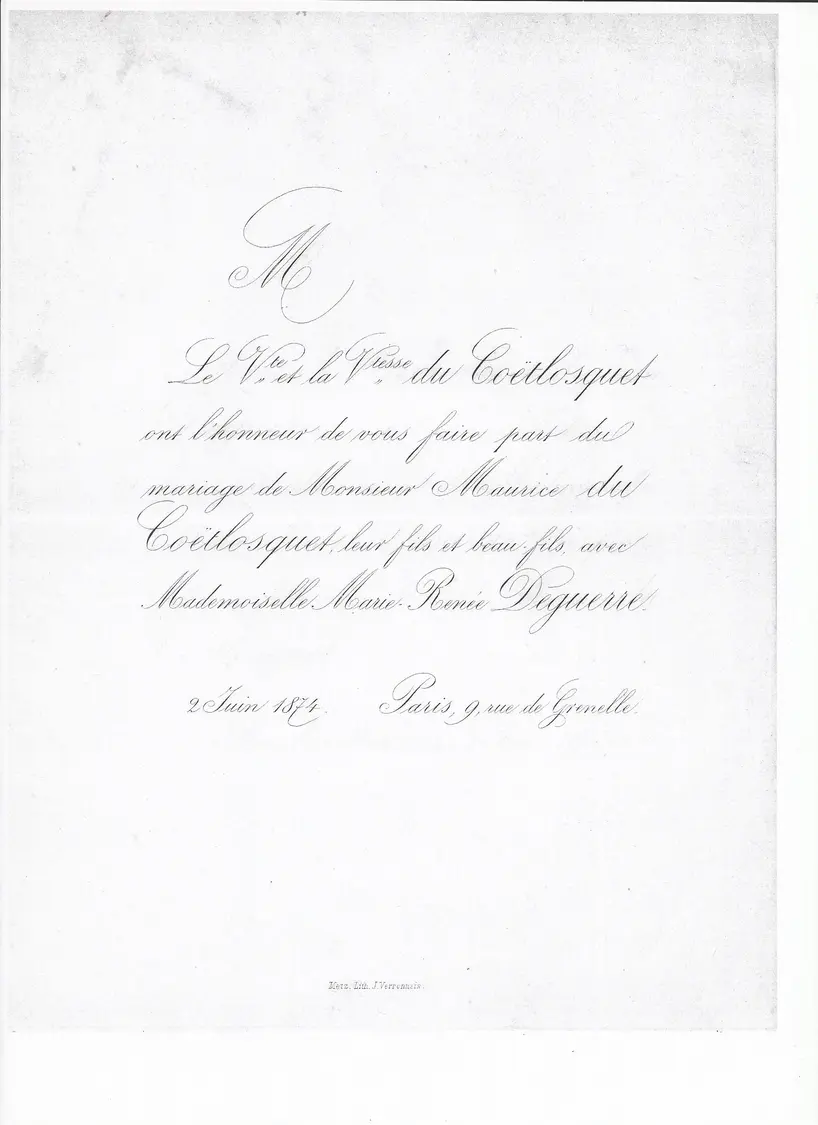 M
Le Vte et la Vtesse du Coëtlosquet
ont l'honneur de vous faire part du
mariage de Monsieur Maurice du
Coëtlosquet, leur fils et beau-fils, avec
Mademoiselle Marie-Renée Déguerre.
2 Juin 1874. Paris, 9, rue de Grenelle.
Metz, Lith. J. Verronnais.